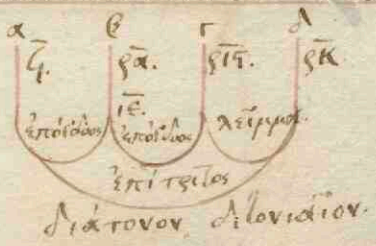 α β γ δ
ϟ. ρα ριγ ρκ
ιε.
ἐπόγδοος ἐπόγδοος λεῖμμα.
ἐπίτριτος
διάτονον διτονιαῖον.